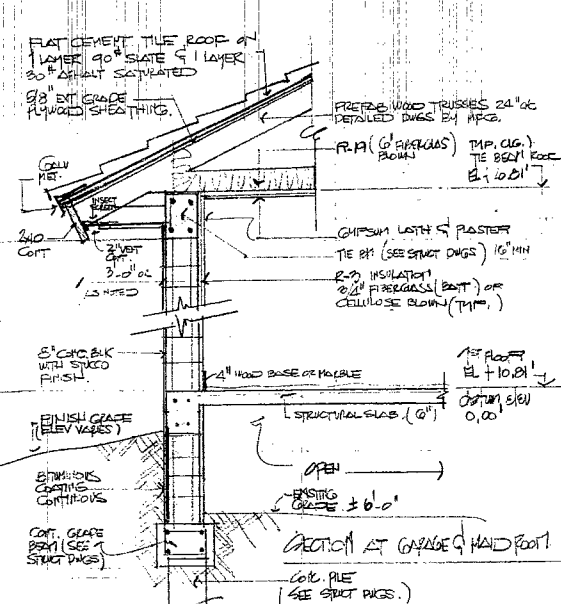 FLAT CEMENT TILE ROOF ON
1 LAYER 90# SLATE & 1 LAYER
30# ASHALT SATURATED
5/8" EXT GRADE
PLYWOOD SHEATHING.
PREFAB WOOD TRUSSES 24" OC
DETAILED DWGS BY MFCG.
R-19 (6" FIBERGLAS)
BLOWN
TYP. CLG.
TIE BEAM ROOF
EL + 10.81'
GALV
MET.
INSECT
SCREEN
2X10
CONT
2" VENT
CONT.
3'-0" OC
AS NOTED
GYPSUM LATH & PLASTER
TIE BM (SEE STRUCT DWGS) 16" MIN
R-3 INSULATION
3/4" FIBERGLASS (BATT) OR
CELLULOSE BLOWN (TYP.)
8" CONC. BLK
WITH STUCCO
FINISH.
4" WOOD BASE OR MARBLE
1ST FLOOR
EL + 10.81'
DATUM ELEV
0.00'
STRUCTURAL SLAB. (6")
FINISH GRADE
(ELEV VARIES)
OPEN
BITUMINOUS
COATING
CONTINUOUS
EXISTING
GRADE ± 6'-0"
CONT. GRADE
BEAM (SEE
STRUCT DWGS)
SECTION AT GARAGE & MAID ROOM
CONC. PILE
(SEE STRUCT DWGS.)